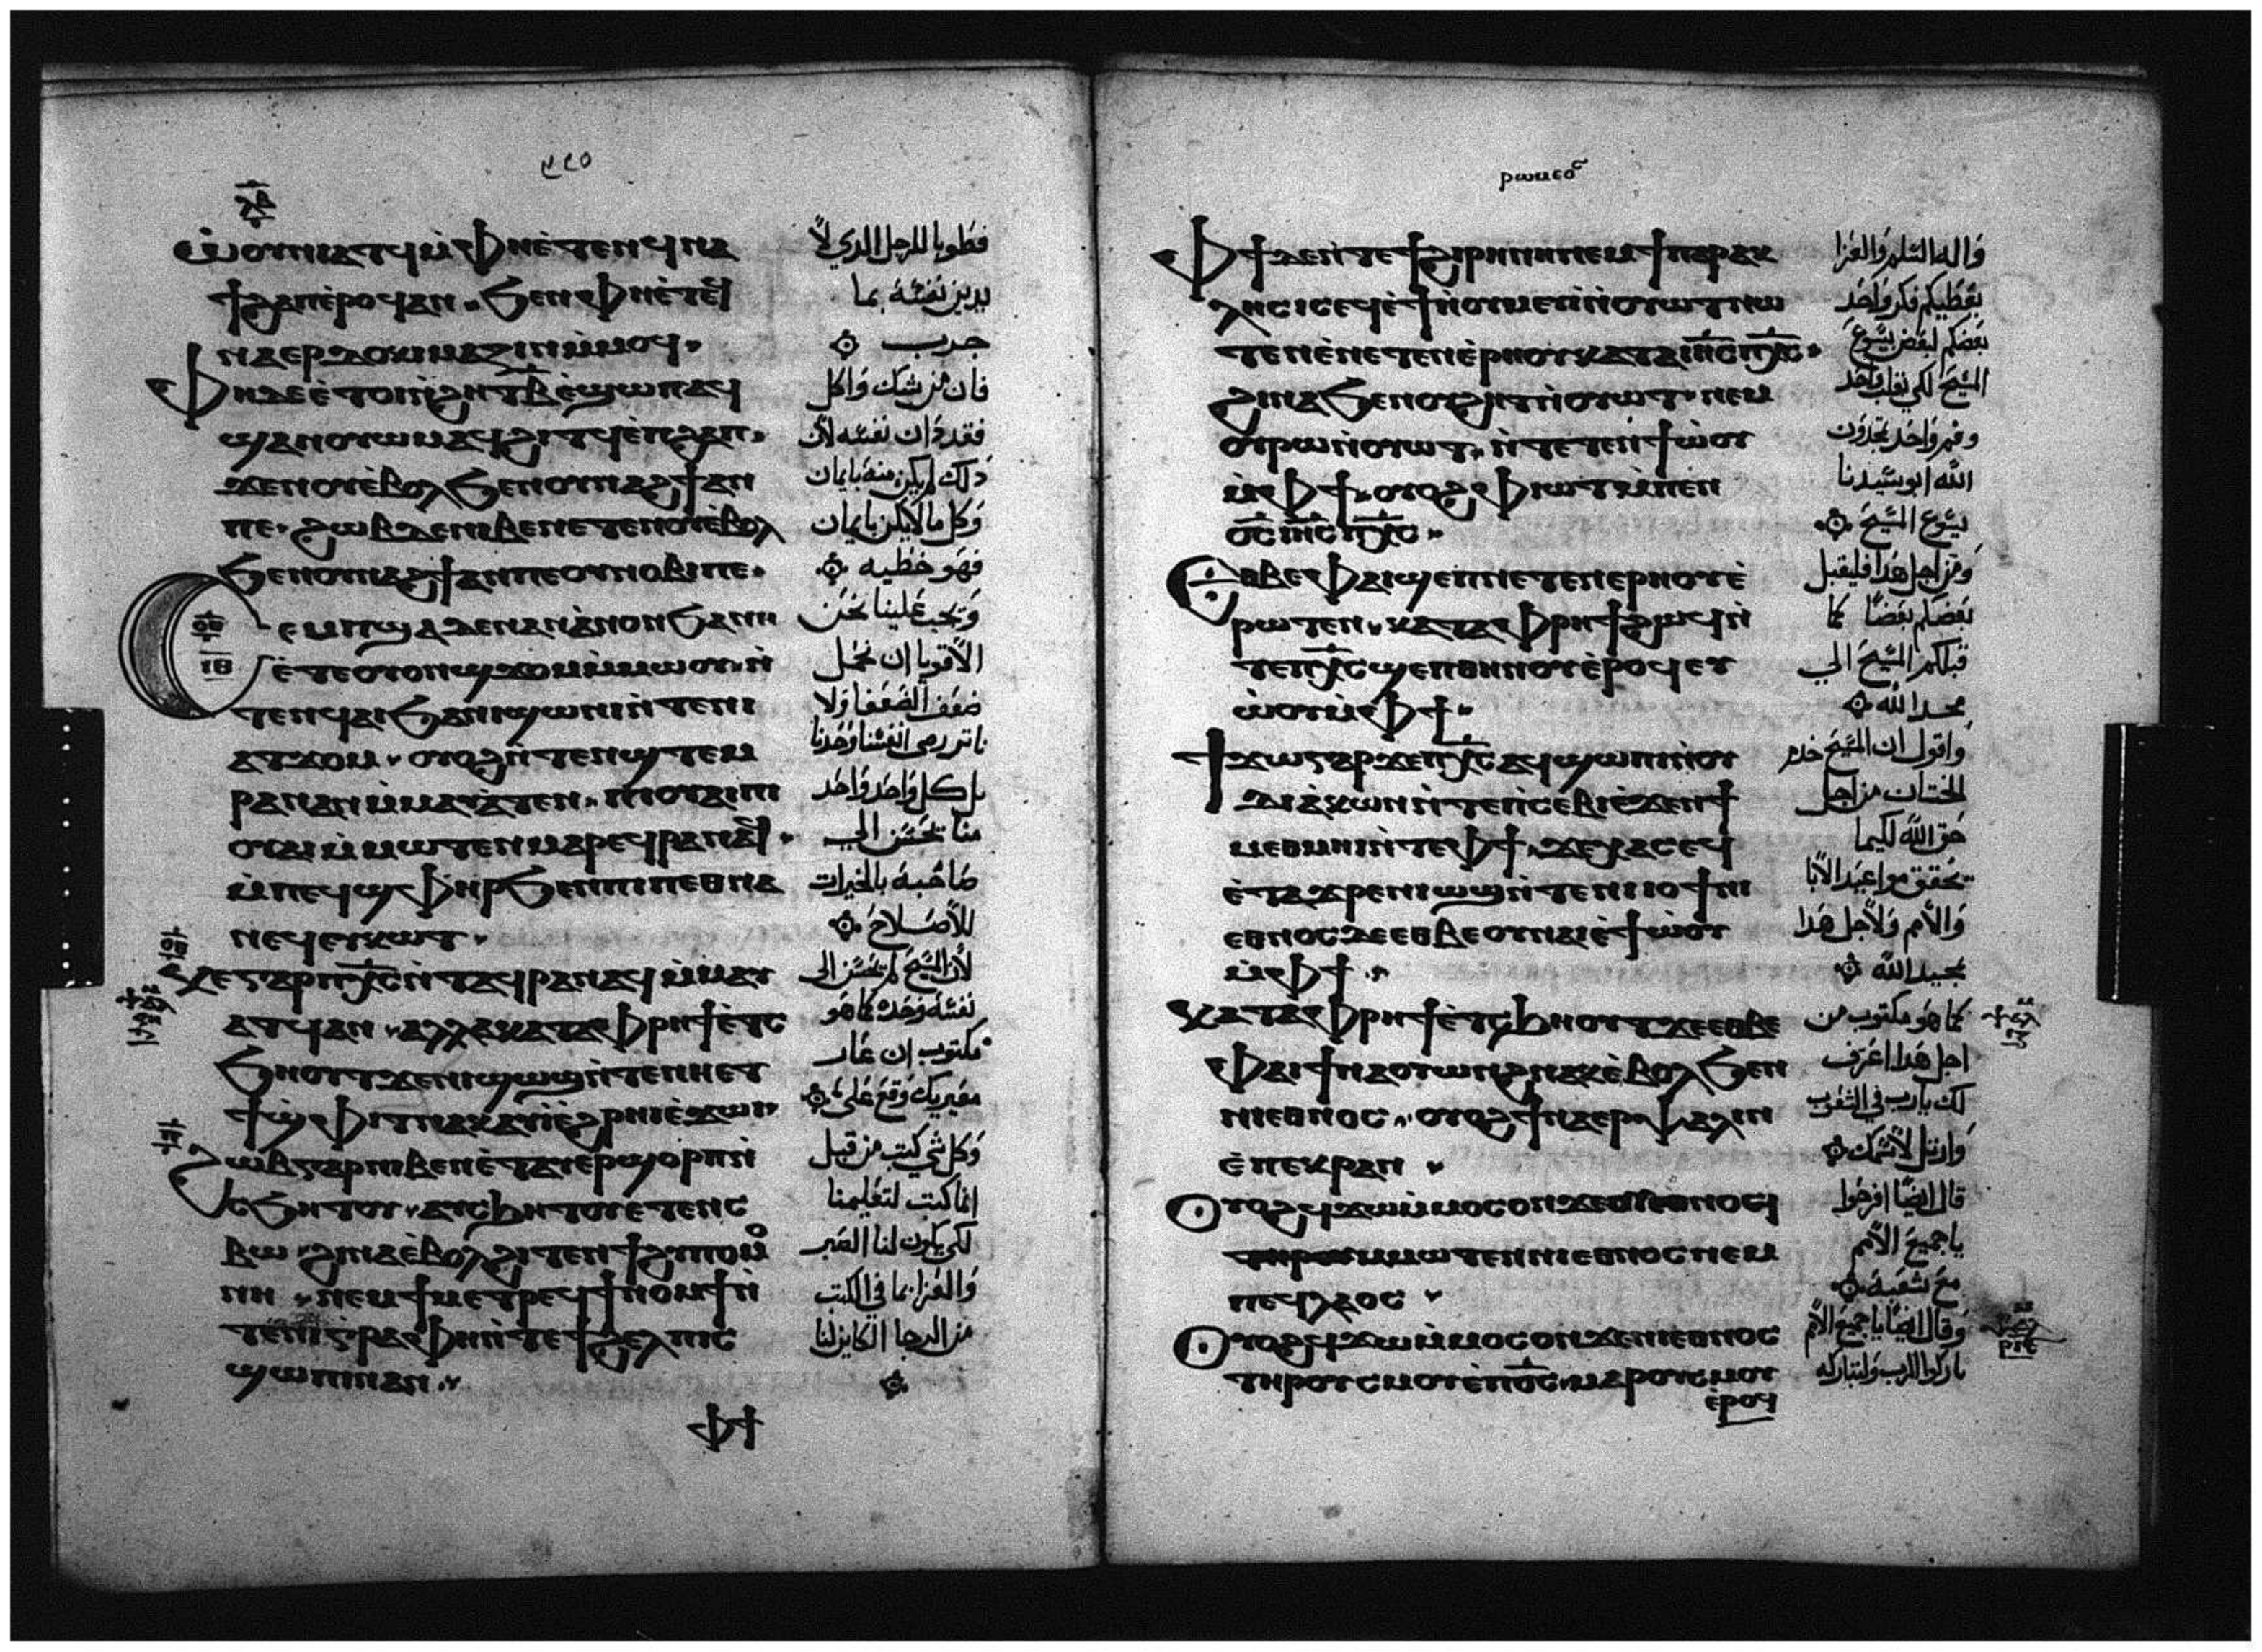 ⲱⲟⲩⲛⲓⲁⲧϥ ⲙ̀ⲫⲏⲉ̀ⲧⲉⲛϥⲛⲁ
ϯϩⲁⲡ ⲉ̀ⲣⲟϥ ⲁⲛ. ϧⲉⲛⲫⲏⲉ̀ⲧⲉϥ
ⲛⲁⲉⲣⲇⲟⲕⲓⲙⲁⲍⲓⲛ ⲙ̀ⲙⲟϥ.
ⲫⲏⲇⲉ ⲉ̀ⲧⲟⲓ ⲛ̀ϩⲏⲧⲃ̅ ⲉ̀ϣⲱⲡ ⲁϥ
ϣⲁⲛⲟⲩⲱⲙ ⲁϥϩⲓⲧϥ ⲉ̀ⲡϩⲁⲡ.
ϫⲉⲛⲟⲩⲉ̀ⲃⲟⲗ ϧⲉⲛⲟⲩⲛⲁϩϯ ⲁⲛ
ⲡⲉ. ϩⲱⲃ ⲇⲉ ⲛⲓⲃⲉⲛ ⲉⲧⲉⲛⲟⲩⲉ̀ⲃⲟⲗ
ϧⲉⲛⲟⲩⲛⲁϩϯ ⲁⲛⲡⲉ ⲟⲩⲛⲟⲃⲓⲡⲉ.
ⲥⲉⲙⲡϣⲁ ⲇⲉ ⲛⲁⲛ ⲁ̀ⲛⲟⲛ ϧⲁⲛⲏ
ⲉ̀ⲧⲉⲟⲩⲟⲛϣϫⲟⲙ ⲙ̀ⲙⲱⲟⲩ. ⲛ̀
ⲧⲉⲛϥⲁⲓ ϧⲁⲛⲓϣⲱⲛⲓ ⲛ̀ⲧⲉⲛⲓ
ⲁⲧϫⲟⲙ. ⲟⲩⲟϩ ⲛ̀ⲧⲉⲛϣⲧⲉⲙ
ⲣⲁⲛⲁⲛ ⲙ̀ⲙⲁⲩⲁ̀ⲧⲉⲛ. ⲡⲓⲟⲩⲁⲓ ⲡⲓ
ⲟⲩⲁⲓ ⲙ̀ⲙⲱⲧⲉⲛ ⲙⲁⲣⲉϥⲣⲁⲛⲁϥ.
ⲙ̀ⲡⲉϥϣⲫⲏⲣ ϧⲉⲛⲡⲓⲡⲉⲑⲛⲁ
ⲛⲉϥ ⲉⲩⲕⲱⲧ.
ⲕⲉ ⲅⲁⲣ ⲡⲭ̅ⲥ̅ ⲛ̀ⲧⲁϥⲣⲁⲛⲁϥ ⲙ̀ⲙⲁⲩ
ⲁⲧϥ ⲁⲛ. ⲁⲗⲗⲁ ⲕⲁⲧⲁⲫⲣⲏϯ ⲉ̀ⲧⲥ
ϧⲏⲟⲩⲧ ϫⲉⲛⲓϣⲱϣ ⲛ̀ⲧⲉⲛⲏⲉⲧ
ϯϣⲫⲓⲧ ⲛⲁⲕ ⲁⲩⲓ̀ ⲉ̀ϩⲣⲏⲓ ⲉ̀ϫⲱⲓ.
ϩⲱⲃ ⲅⲁⲣ ⲛⲓⲃⲉⲛ ⲉ̀ⲧⲁⲩⲉⲣϣⲟⲣⲡ ⲛ̀
ⲥϧⲏⲧⲟⲩ. ⲁⲩⲥϧⲏⲧⲟⲩ ⲉⲧⲉⲛⲥ
ⲃⲱ. ϩⲓⲛⲁ ⲉ̀ⲃⲟⲗϩⲓⲧⲉⲛ ϯϩⲩⲡⲟⲙⲟ
ⲛⲏ. ⲛⲉⲙ ϯⲙⲉⲧⲣⲉϥϯⲛⲟⲙϯ ⲛ̀
ⲧⲉⲛⲓⲅⲣⲁⲫⲏ ⲛ̀ⲧⲉϯϩⲉⲗⲡⲓⲥ
ϣⲱⲡⲓ ⲛⲁⲛ.
ⲫϯ
فطوبا للرجل الدي لا
يدين نفسه بما
جرب
فان من شك واكل
فقد دان نفسه لان
دلك لم يكن منه بايمان
وكل ما لا يكن بايمان
فهو خطيه
ويجب علينا نحن
الاقويا ان نحمل
ضعف الضعفا ولا
بل كل واحد واحد
منا يحسن الى
صاحبه بالخيرات
للاصلاح
لان المسيح لم يحسن الى
نفسه وحده كما هو
مكتوب ان عار
معيريك وقع علي
وكل شي كتب من قبل
انما كتب لتعليمنا
لكي يكون لنا الصبر
والعزا بما في الكتب
من الرجا الكاين لنا
ⲫϯ ⲇⲉ ⲛ̀ⲧⲉϯϩⲓⲣⲏⲛⲏ ⲛⲉⲙ ϯⲡⲁⲣⲁⲕ
ⲗⲏⲥⲓⲥ ⲉϥⲉ̀ϯ ⲛ̀ⲟⲩⲙⲉⲩⲓ ⲛ̀ⲟⲩⲱⲧ ⲛⲱ
ⲧⲉⲛ ⲉ̀ⲛⲉⲧⲉⲛⲉ̀ⲣⲏⲟⲩ ⲕⲁⲧⲁ ⲓⲏ̅ⲥ̅ ⲡⲭ̅ⲥ̅.
ϩⲓⲛⲁ ϧⲉⲛⲟⲩϩⲏⲧ ⲛ̀ⲟⲩⲱⲧ. ⲛⲉⲙ
ⲟⲩⲣⲱ ⲛ̀ⲟⲩⲱⲧ. ⲛ̀ⲧⲉⲧⲉⲛϯⲱ̀ⲟⲩ
ⲙ̀ⲫϯ. ⲟⲩⲟϩ ⲫⲓⲱⲧ ⲙ̀ⲡⲉⲛ
ⲟ̅ⲥ̅ ⲓⲏ̅ⲥ̅ ⲡⲭ̅ⲥ̅.
ⲉⲑⲃⲉⲫⲁⲓ ϣⲉⲡ ⲛⲉⲧⲉⲛⲉⲣⲏⲟⲩ ⲉ̀
ⲣⲱⲧⲉⲛ. ⲕⲁⲧⲁⲫⲣⲏϯ ϩⲱϥ ⲛ̀
ⲧⲉⲡⲭ̅ⲥ̅ ϣⲉⲡⲑⲏⲛⲟⲩ ⲉ̀ⲣⲟϥ ⲉⲩ
ⲱ̀ⲟⲩ ⲙ̀ⲫϯ.
ϯϫⲱ ⲅⲁⲣ ϫⲉⲡⲭ̅ⲥ̅ ⲁϥϣⲱⲡⲓ ⲛ̀ⲟⲩ
ⲇⲓⲁ̀ⲕⲱⲛ ⲛ̀ⲧⲉⲡⲥⲉⲃⲓ ⲉ̀ϫⲉⲛϯ
ⲙⲉⲑⲙⲏⲓ ⲛ̀ⲧⲉⲫϯ. ϫⲉⲭⲁⲥ ⲉϥ
ⲉ̀ⲧⲁϫⲣⲉ ⲛⲓⲱϣ ⲛ̀ⲧⲉⲛⲓⲓⲟϯ ⲛⲓ
ⲉⲑⲛⲟⲥ ⲇⲉ ⲉⲑⲃⲉⲟⲩⲛⲁⲓ ⲉ̀ϯⲱ̀ⲟⲩ
ⲙ̀ⲫϯ.
ⲕⲁⲧⲁⲫⲣⲏϯ ⲉ̀ⲧⲥϧⲏⲟⲩⲧ ϫⲉⲉⲑⲃⲉ
ⲫⲁⲓ ϯⲛⲁⲟⲩⲱⲛϩ ⲛⲁⲕ ⲉ̀ⲃⲟⲗ ϧⲉⲛ
ⲛⲓⲉⲑⲛⲟⲥ. ⲟⲩⲟϩ ϯⲛⲁⲉⲣⲯⲁⲗⲓⲛ
ⲉ̀ⲡⲉⲕⲣⲁⲛ.
ⲟⲩⲟϩ ϥϫⲱ ⲙ̀ⲙⲟⲥ ⲟⲛ
ⲙⲙⲱⲧⲉⲛ ⲛⲓⲉⲑⲛⲟⲥ ⲛⲉⲙ
ⲡⲉϥⲗⲁⲟⲥ.
ⲟⲩⲟϩ ϥϫⲱ ⲙ̀ⲙⲟⲥ ⲟⲛ ϫⲉⲛⲓⲉⲑⲛⲟⲥ
ⲧⲏⲣⲟⲩ ⲥⲙⲟⲩ ⲉ̀ⲡⲟ̅ⲥ̅. ⲙⲁⲣⲟⲩⲥⲙⲟⲩ
ⲉ̀ⲣⲟϥ
واله السلم والعزا
يعطيكم فكر واحد
بعضكم لبعض يسوع
المسيح لكي بقلب واحد
وفم واحد تمجدون
الله ابو سيدنا
يسوع المسيح
ومن اجل هدا فليقبل
بعضكم بعضا كما
قبلكم المسيح الى
مجد الله
واقول ان المسيح خدم
الختان من اجل
حق الله لكيما
يحقق مواعيد الابا
والامم ولاجل هدا
تمجيد الله
كما هو مكتوب من
اجل هدا اعترف
لك يارب في الشعوب
وارتل لاسمك
قال ايضا افرحوا
يا جميع الامم
مع شعبه
وقال ايضا يا جميع الامم
باركوا الرب ولتباركه